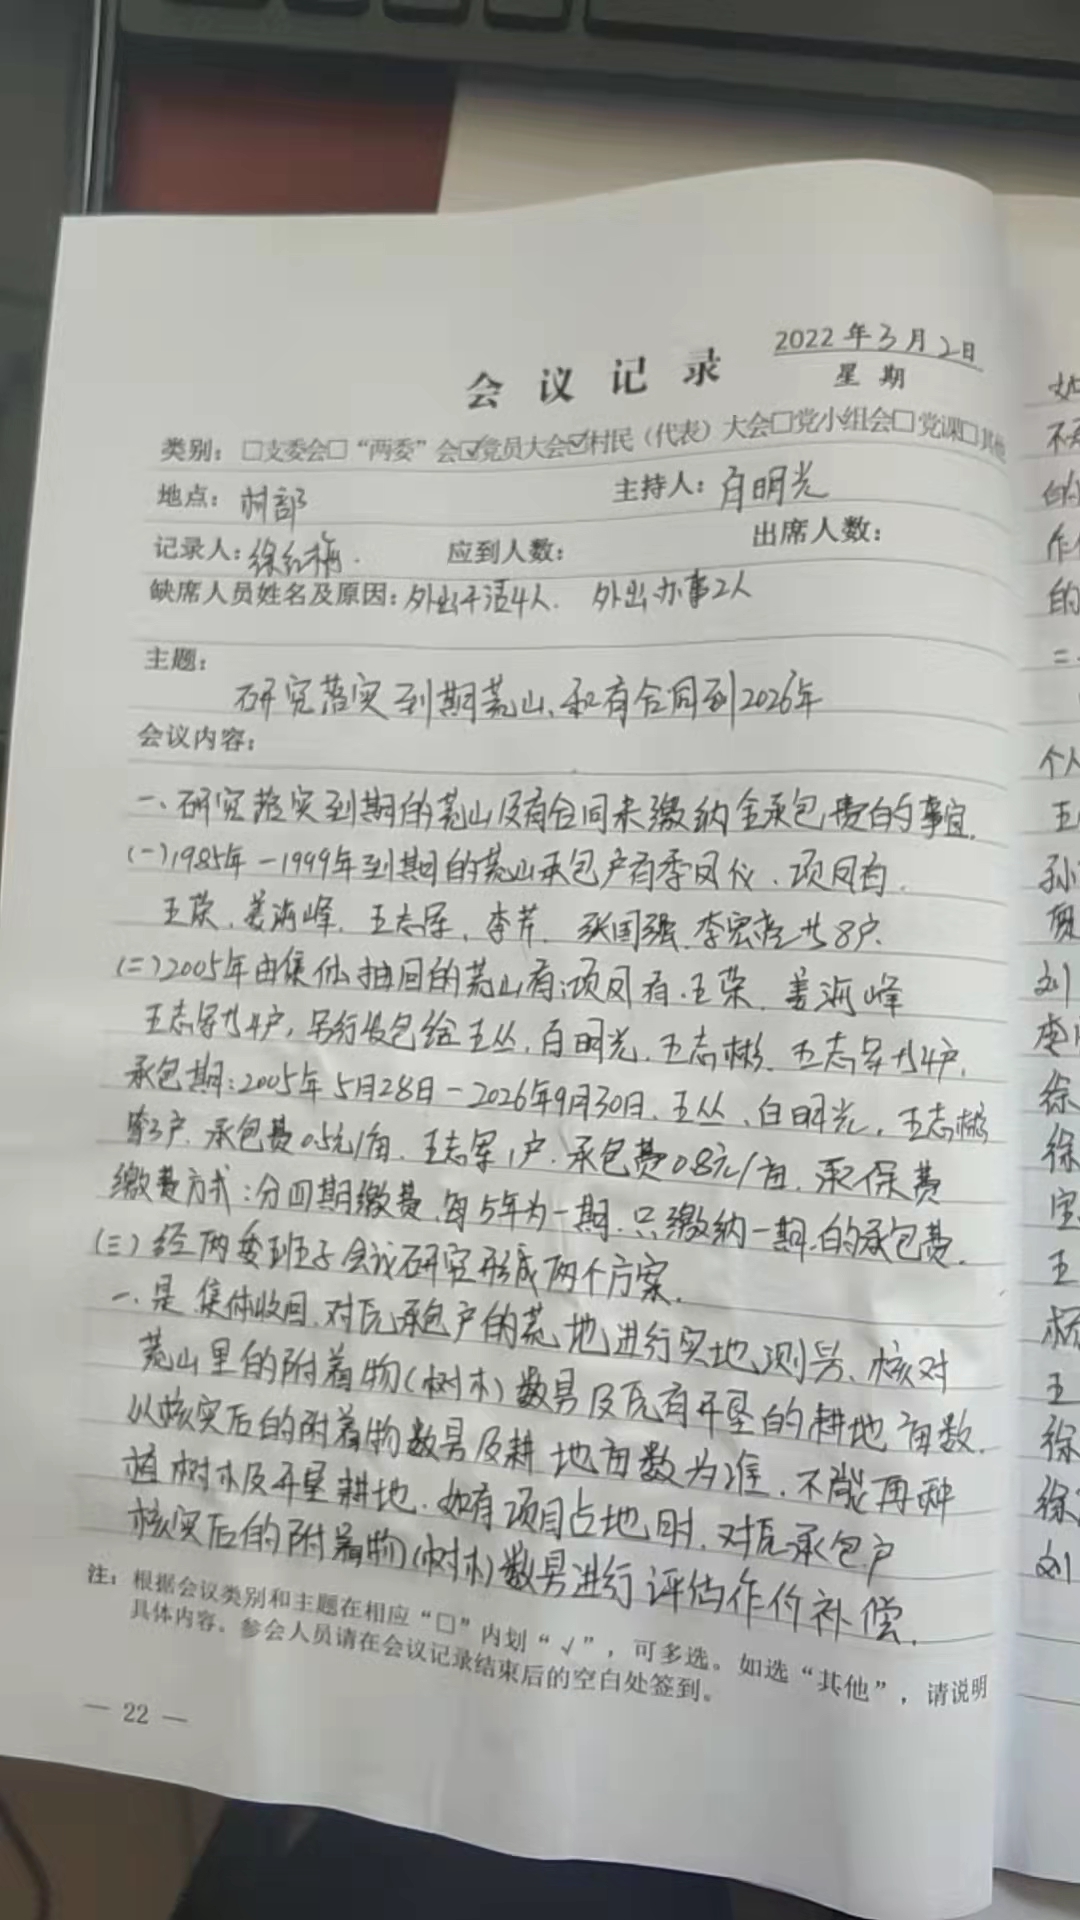 2022年3月2日
会议记录
星期
类别：□支委会□“两委”会☑党员大会☑村民（代表）大会□党小组会□党课□其他
地点：村部 主持人：白明光
记录人：徐红梅. 应到人数： 出席人数：
缺席人员姓名及原因：外出干活4人. 外出办事2人
主题：
研究落实到期荒山、和有合同到2026年
会议内容：
一、研究落实到期的荒山及有合同未缴纳全承包费的事宜.
(一)1985年-1999年到期的荒山承包户有季凤仪、项凤有.
王荣、姜海峰、王志军、李芹、张国强、李宏亮共8户.
(二)2005年由集体抽回的荒山有:项凤有、王荣、姜海峰
王志军共4户,另行发包给王丛,白明光,王志彬、王志军共4户.
承包期:2005年5月28日-2026年9月30日、王丛、白明光,王志彬
等3户、承包费0.5元/亩、王志军1户、承包费0.8元/亩、承保费
缴费方式:分四期缴费.每5年为一期.只缴纳一期.的承包费.
(三)经两委班子会议研究形成两个方案.
一.是集体收回,对瓦承包户的荒地进行实地测号、核对
荒山里的附着物(树木)数量及瓦有开垦的耕地亩数.
以核实后的附着物数量及耕地亩数为准.不能再种
植树木及开垦耕地.如有项目占地时,对瓦承包户
核实后的附着物(树木)数量进行评估作价补偿.
注：根据会议类别和主题在相应“□”内划“√”，可多选。如选“其他”，请说明
具体内容。参会人员请在会议记录结束后的空白处签到。
— 22 —